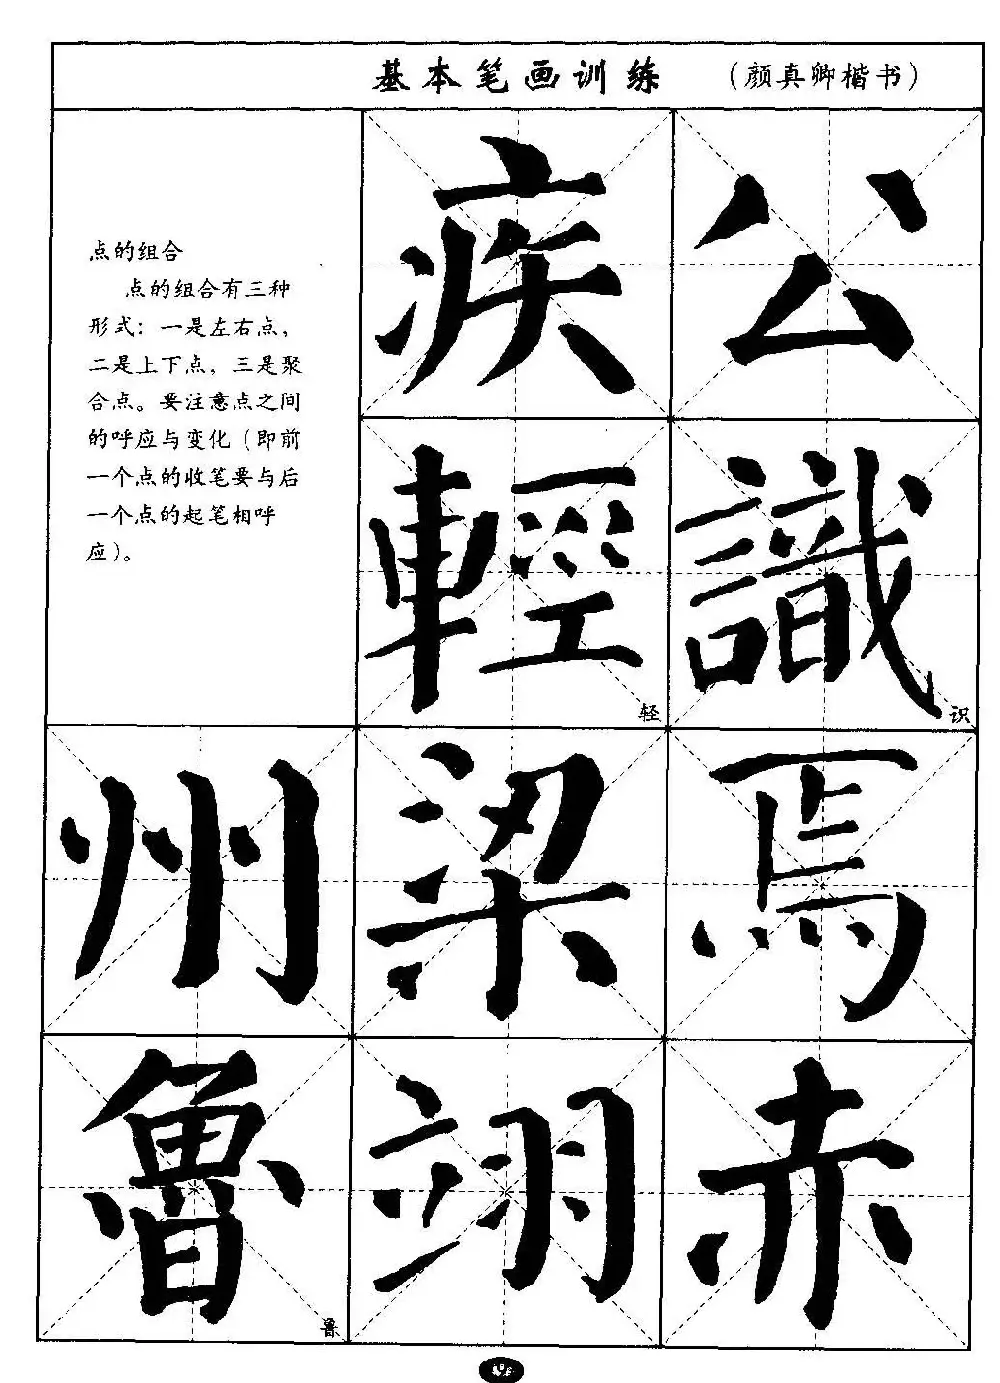 基本笔画训练 （颜真卿楷书）
点的组合
点的组合有三种
形式：一是左右点，
二是上下点，三是聚
合点。要注意点之间
的呼应与变化（即前
一个点的收笔要与后
一个点的起笔相呼
应）。
疾 公
輕 轻 識 识
州 梁 焉
魯 鲁 翊 赤